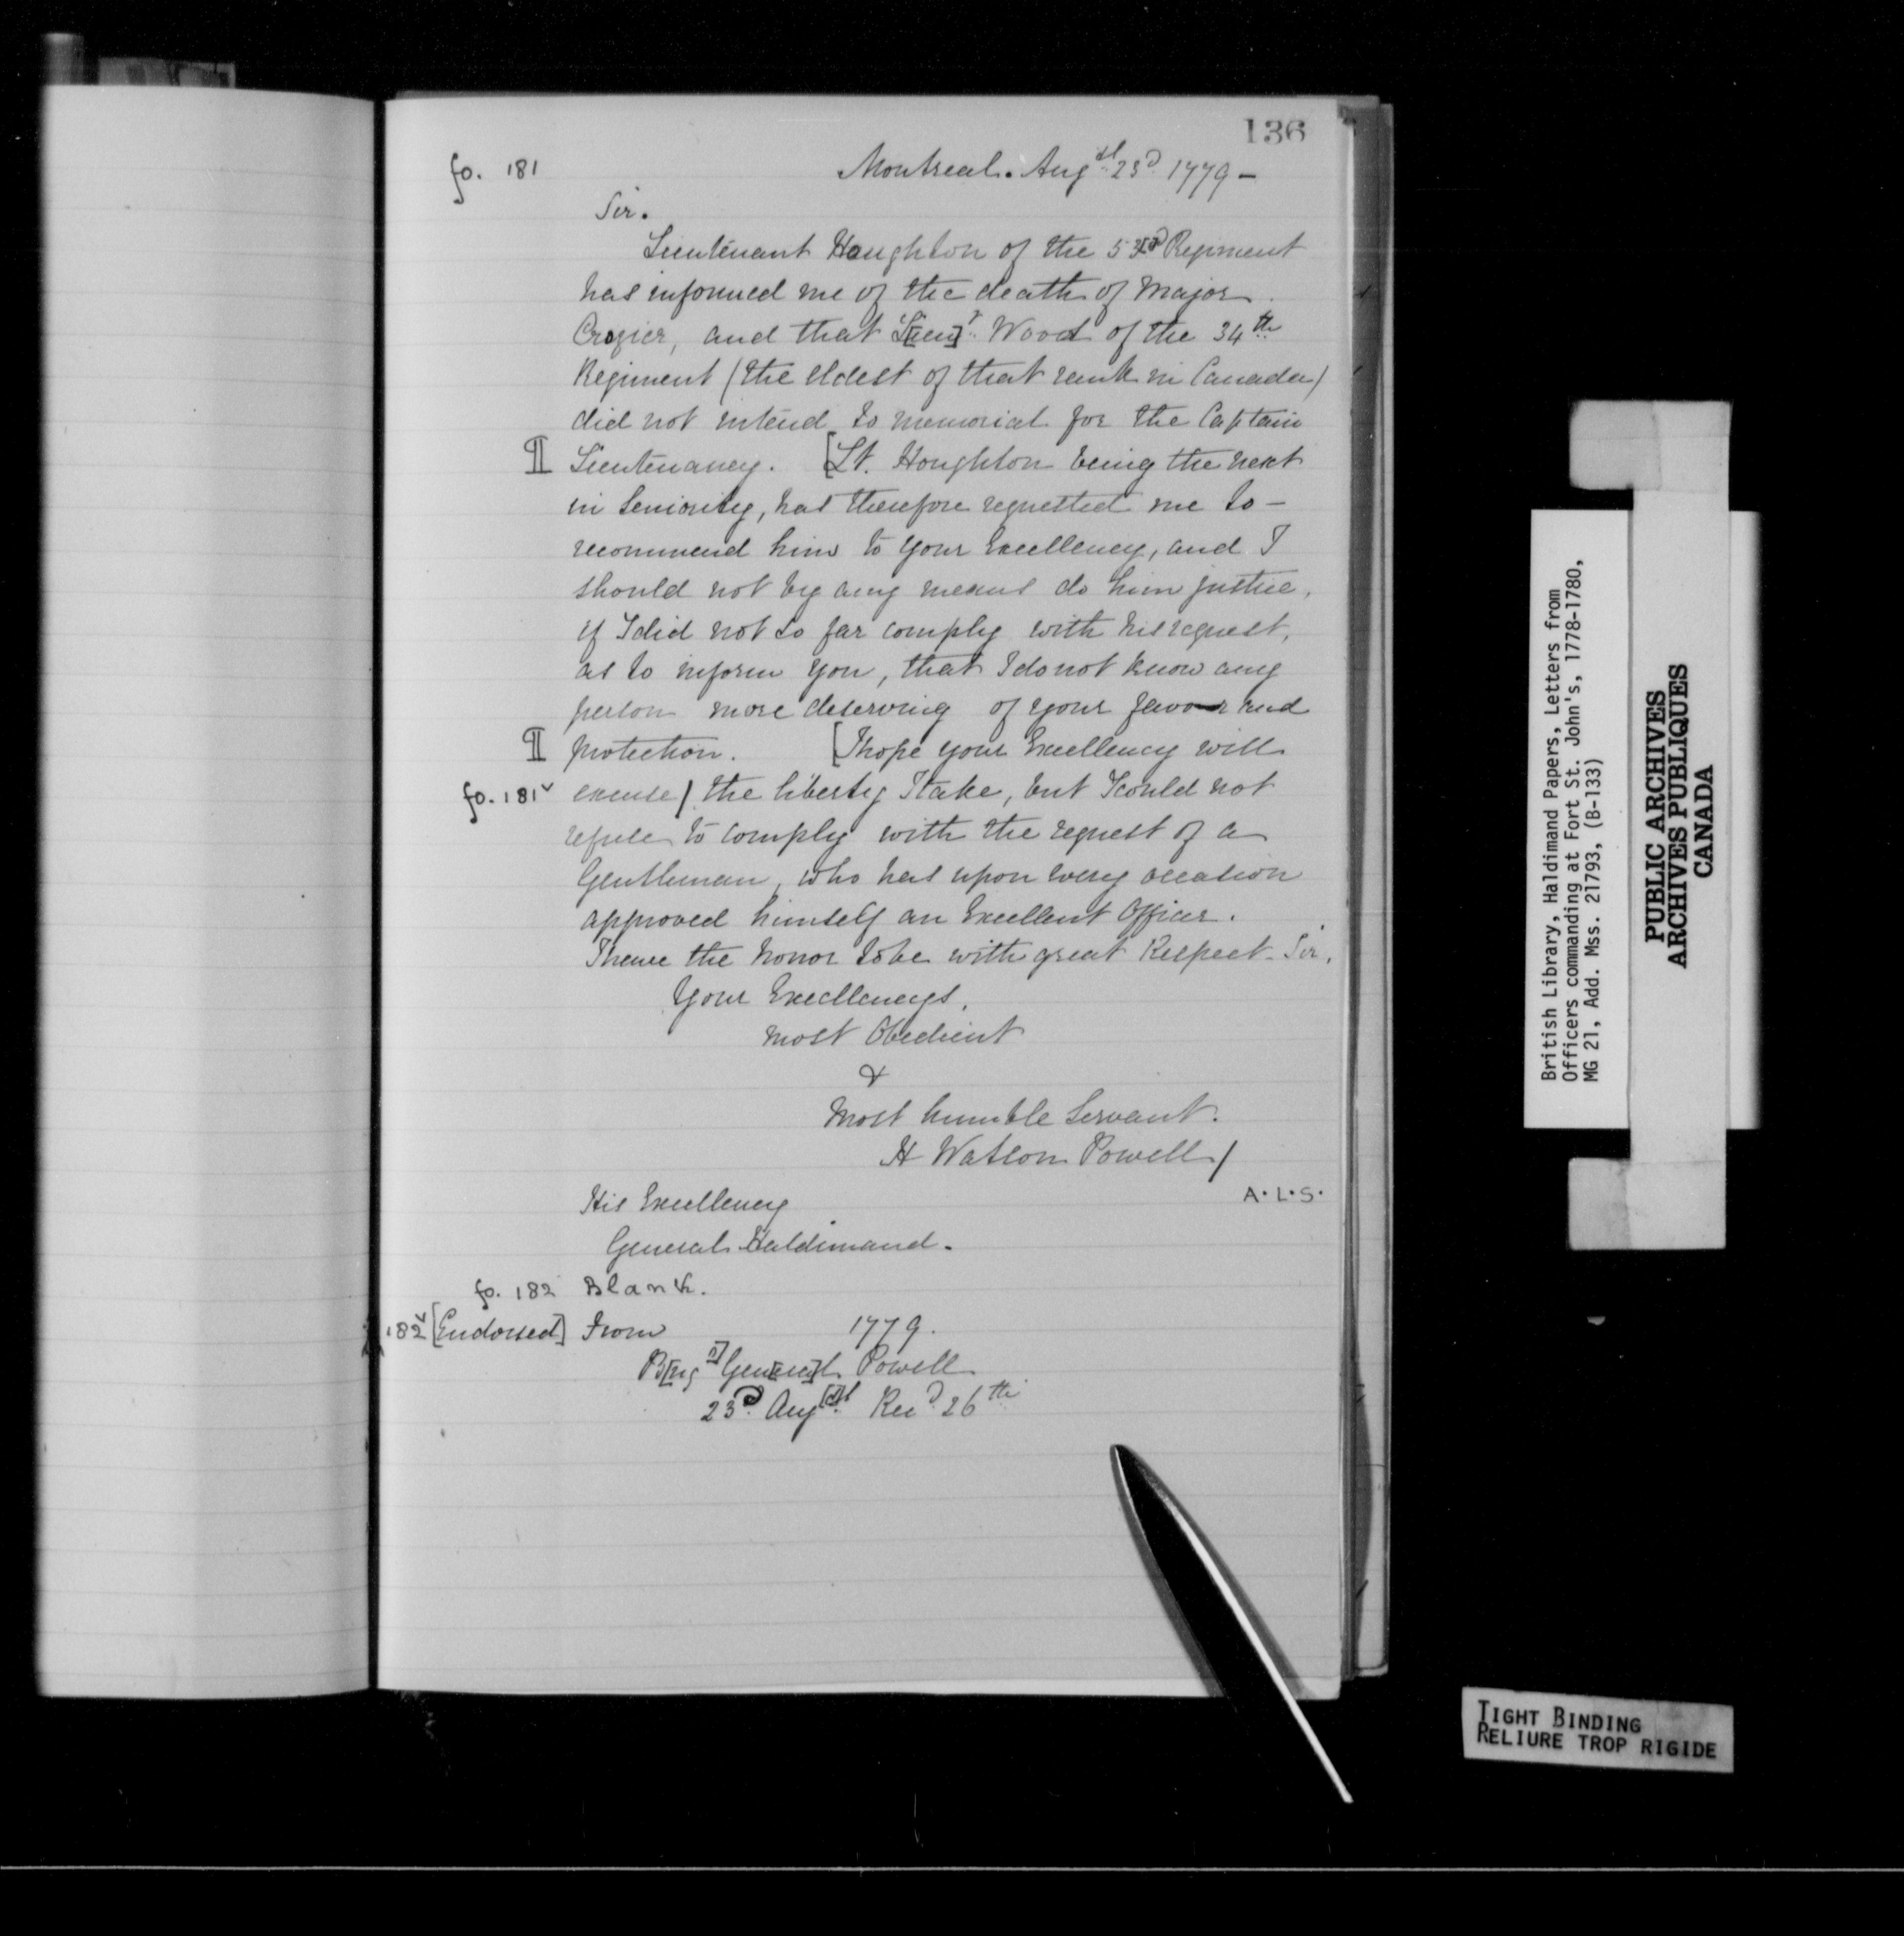 136
fo. 181
Montreal. Augst 23d 1779 -
Sir.
Lieutenant Houghton of the 53rd Regiment
has informed me of the death of Major
Crozier, and that L[ieu]t. Wood of the 34th
Regiment (the eldest of that rank in Canada)
did not intend to memorial for the Captain
¶ Lieutenancy. [Lt. Houghton being the next
in Seniority, has therefore requested me to -
recommend him to your Excellency, and I
should not by any means do him justice,
if I did not so far comply with his request,
as to inform you, that I do not know any
person more deserving of your favour and
¶ protection. [I hope your Excellency will
fo. 181v excuse/ the liberty I take, but I could not
refuse to comply with the request of a
Gentleman, who has upon every occasion
approved himself an Excellent Officer.
I have the honor to be with great Respect - Sir,
Your Excellencys,
most Obedient
&
most humble Servant.
H Watson Powell/
A.L.S.
His Excellency
General Haldimand.
fo. 182 Blank.
182v [Endorsed] From 1779.
B[rig r] Gen[era]l Powell
23d Aug[u]st Recd 26th
British Library, Haldimand Papers, Letters from
Officers commanding at Fort St. John's, 1778-1780,
MG 21, Add. Mss. 21793, (B-133)
PUBLIC ARCHIVES
ARCHIVES PUBLIQUES
CANADA
TIGHT BINDING
RELIURE TROP RIGIDE